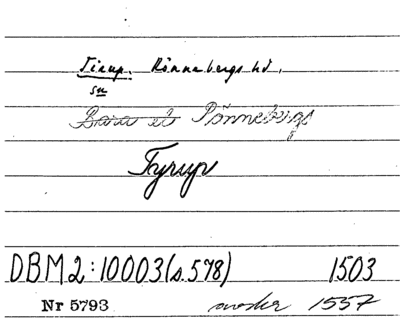 Tirup. Rönnebergs hd.
sn
Bara et Rönnebergs
Tyrup
DBM 2:10003 (s. 578) 1503
Nr 5793 under 1557